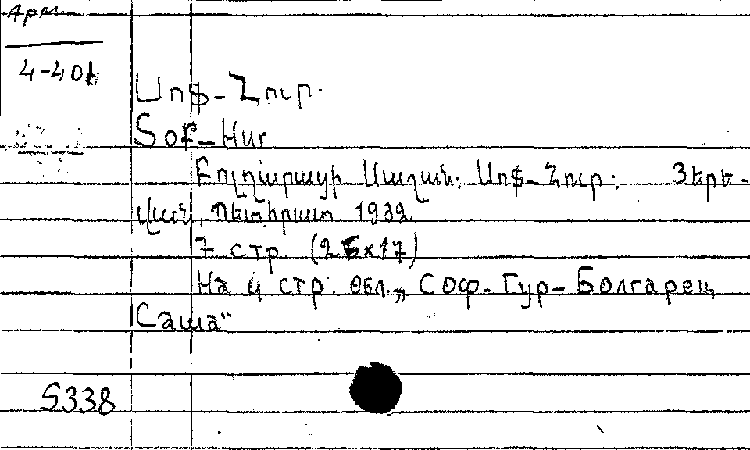 Арм
4-401
Սոֆ-Հուր.
Sof-Hur
Բուլղարացի Սաշան. Սոֆ-Հուր. Յերե-
վան, Պետհրատ 1932
7 стр. (25x17)
На 4 стр. обл. „Соф-Гур-Болгарец
Саша"
5338